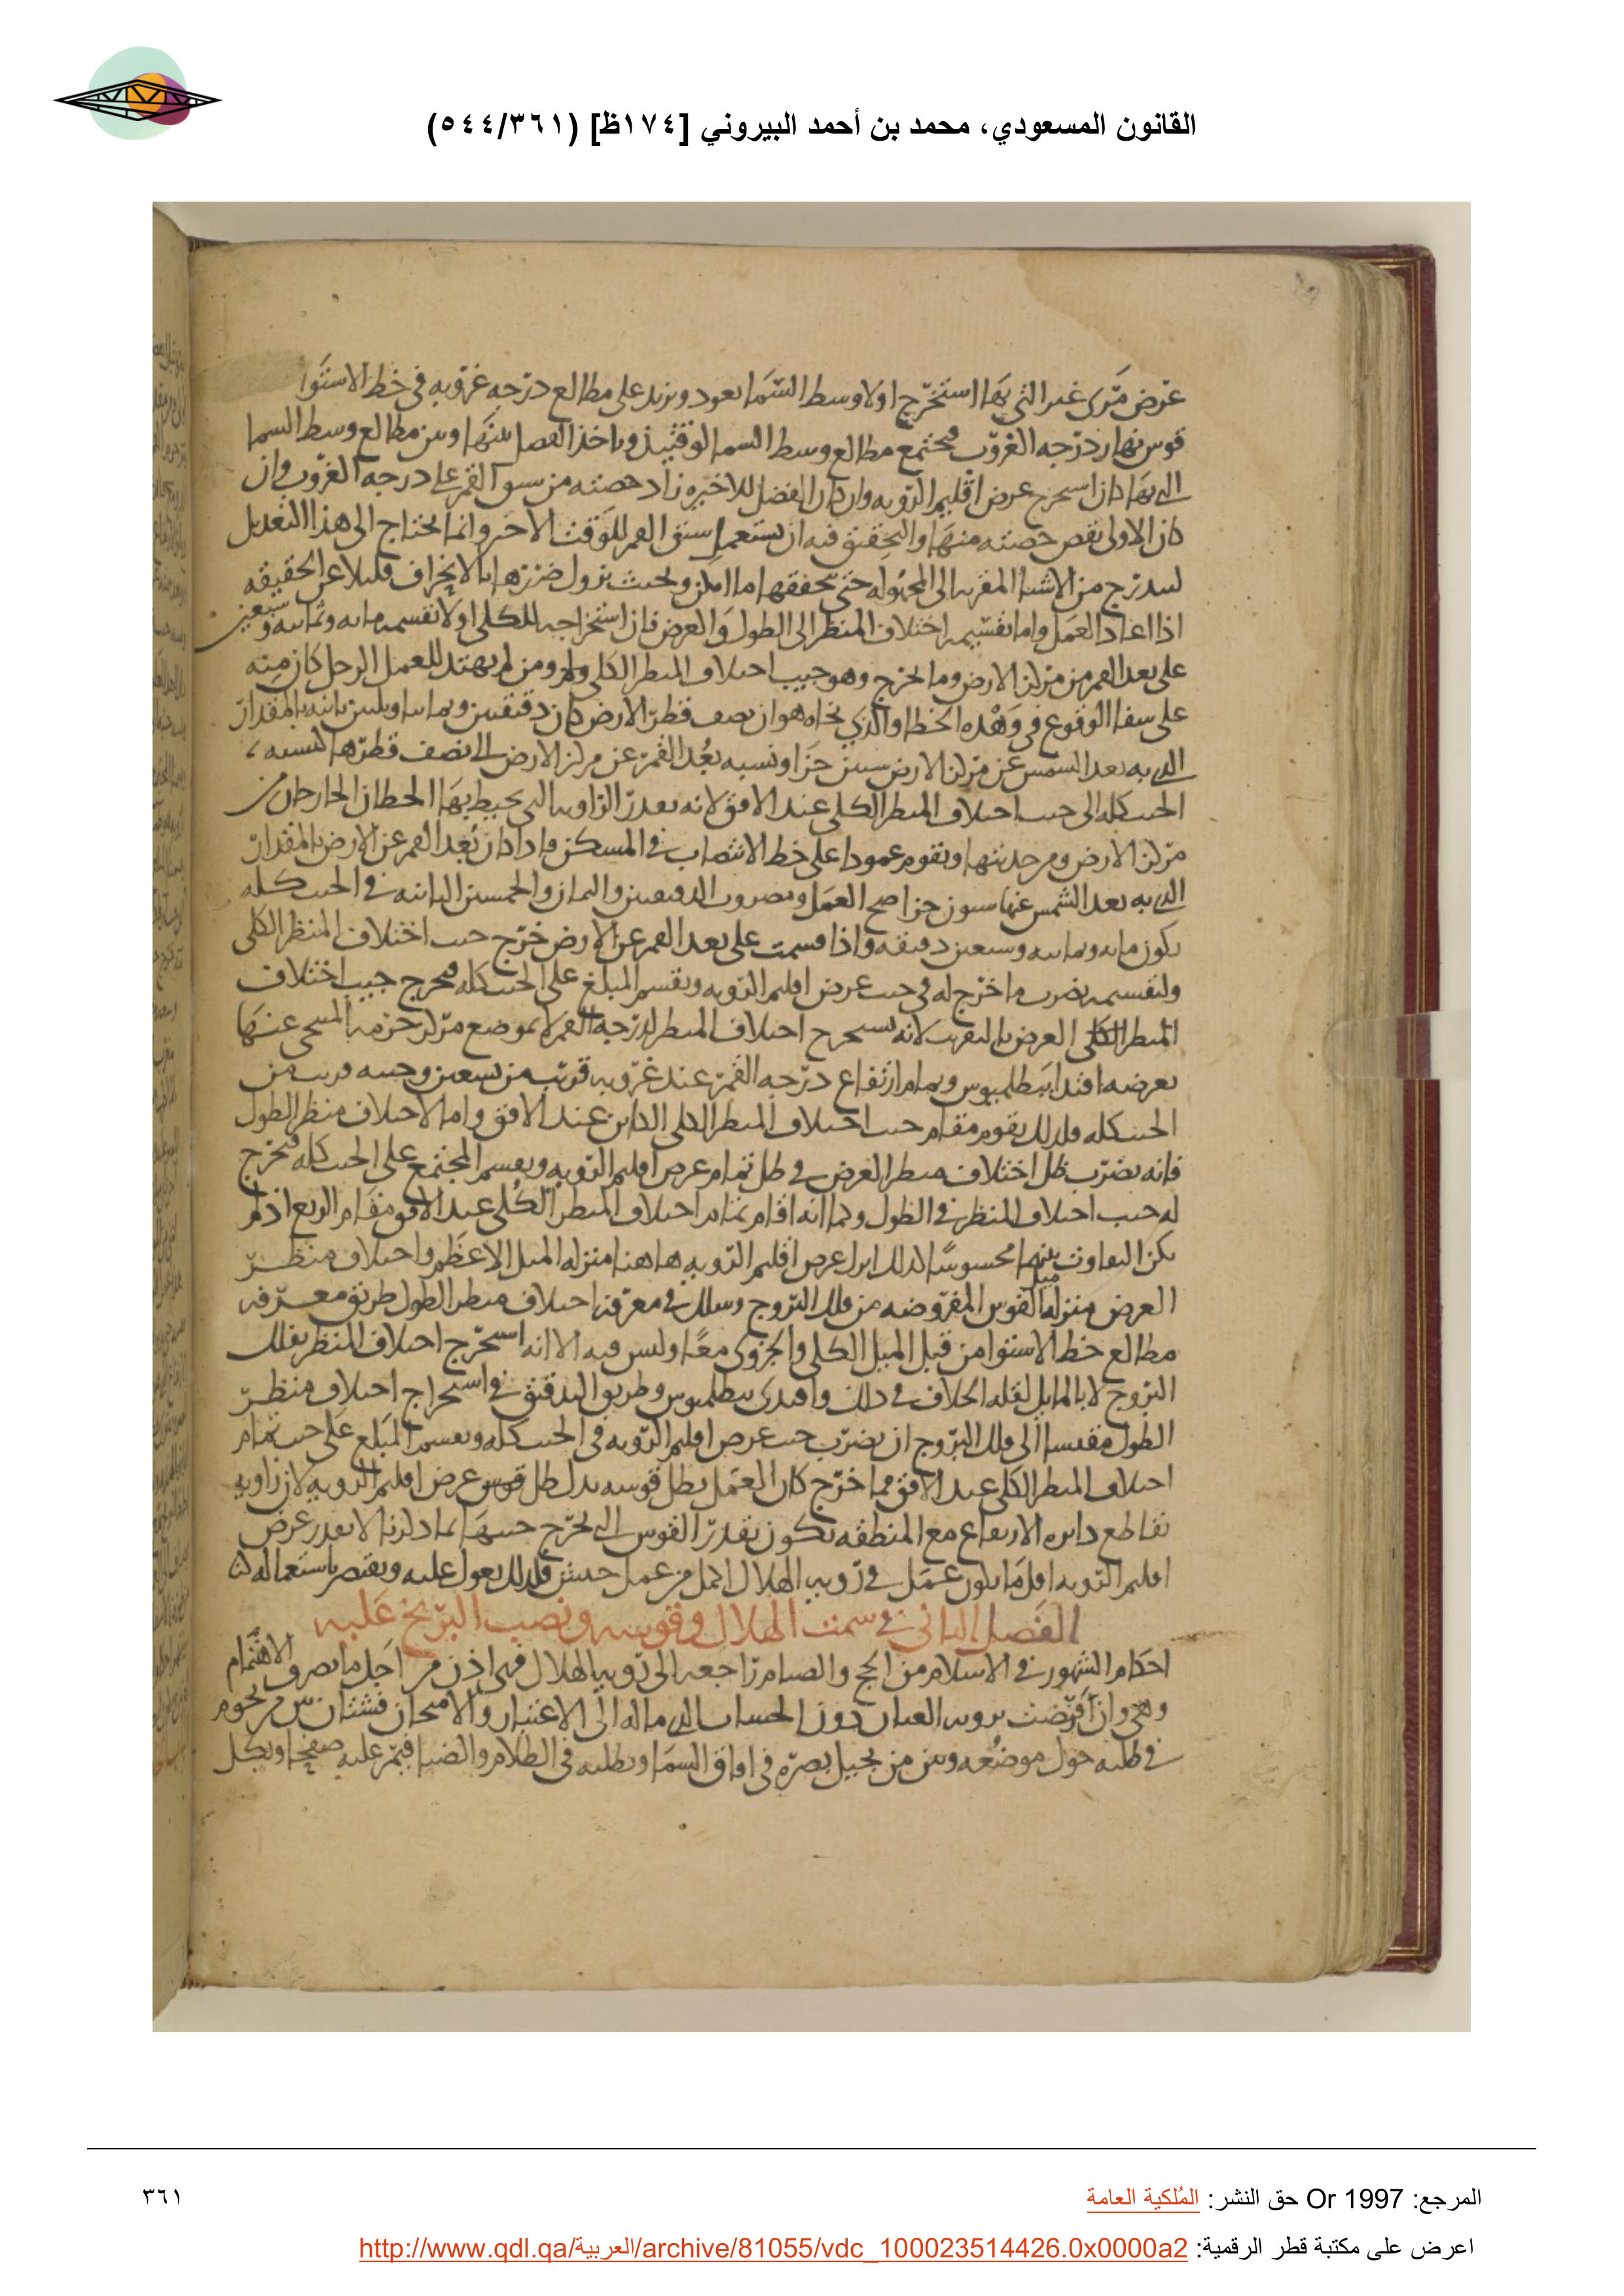 القانون المسعودي، محمد بن أحمد البيروني [١٧٤ظ] (٥٤٤/٣٦١)
عرض مرى غير التى بها استخرج اولا وسط السما نعود ونزيد على مطالع درجه غروبه فى خط الاستوا
قوس نهار درجه الغروب فيجتمع مطالع وسط السما لوقتئذ وناخذ الفصل بينها وبين مطالع وسط السما
التى بها كان استخرج عرض اقليم الرويه وان كان الفضل للاخيره زاد حصته من سير القمر على درجه الغروب وان
كان الاولى نقص حصته منها والتحقيق فيه ان يستعمل سبق القمر للوقت الاخر وانما يحتاج الى هذا التعديل
ليتدرج من الاشيا المقربه الى المجهوله حتى يحققها ما امكن وبحيث يزول ضررها بالانحراف قليلا عن الحقيقه
اذا اعاد العمل واما تقسيمه اختلاف المنظر الى الطول والعرض فان استخراجه للكلى اولا بقسمه مايه وثمانيه وسبعين
على بعد القمر من مركز الارض وما يخرج وهو جيب اختلاف المنظر الكلى ومن لم يهتد للعمل الرجل كان منه
على شفا الوقوع فى وهده الخطا والذى نحاه هو ان نصف قطر الارض كان دقيقتين وثمانيا وثلثين ثانيه بالمقدار
الذى به بعد الشمس عن مركز الارض ستين جزا ونسبه بعد القمر عن مركز الارض الى نصف قطرها كنسبه
الجيب كله الى جيب اختلاف المنظر الكلى عند الافق لانه بقدر الزاويه التى يحيط بها الخطان الخارجان من
مركز الارض ومن حدبتها ويقوم عمودا على خط الانتصاب فى المسكن واذا كان بعد القمر عن الارض بالمقدار
الذى به بعد الشمس عنها ستون جزا صح العمل ومضروب الدقيقتين والثمان والخمسين الثانيه فى الجيب كله
يكون مايه وثمانيه وسبعين دقيقه واذا قسمت على بعد القمر عن الارض خرج جيب اختلاف المنظر الكلى
ولتقسيمه يضرب ما خرج له فى جيب عرض اقليم الرويه ويقسم المبلغ على الجيب كله فيخرج جيب اختلاف
المنظر الكلى العرض بالتقريب لانه يستخرج اختلاف المنظر لدرجه القمر لا لموضع مركز جرمه المتنحى عنها
بعرضه اقتدا ببطلميوس وتمام ارتفاع درجه القمر عند غروبه قريب من تسعين وجيبه قريب من
الجيب كله ولذلك يقوم مقام جيب اختلاف المنظر الكلى الكاين عند الافق واما لاختلاف منظر الطول
فانه يضرب ظل اختلاف منظر العرض فى ظل تمام عرض اقليم الرويه ويقسم المجتمع على الجيب كله فيخرج
له جيب اختلاف المنظر فى الطول وكما انه اقام تمام اختلاف المنظر الكلى عند الافق مقام الربع اذ لم
يكن التفاوت بينهما محسوسا كذلك انزل عرض اقليم الرويه هاهنا منزله الميل الاعظم واختلاف منظر
العرض منزله ميل القوس المفروضه من فلك البروج وسلك فى معرفه اختلاف منظر الطول طريق معرفه
مطالع خط الاستوا من قبل الميل الكلى والجزوى معا وليس فيه الا انه استخرج اختلاف المنظر بفلك
البروج لا بالمايل لقله الخلاف فى ذلك واقتدى ببطلميوس وطريق التدقيق فى استخراج اختلاف منظر
الطول مقيسا الى فلك البروج ان يضرب جيب عرض اقليم الرويه فى الجيب كله ويقسم المبلغ على جيب تمام
اختلاف المنظر الكلى عند الافق فما خرج كان العمل بظل قوسه بدل ظل قوس عرض اقليم الرويه لان زاويه
تقاطع دايره الارتفاع مع المنطقه تكون بقدر القوس التى يخرج جيبها بما ذكرنا لا بقدر عرض
اقليم الرويه اقل ما يكون عمل فى رويه الهلال اكمل من عمل حبش فلذلك يعول عليه ويقتصر باستعماله
الفصل الثانى فى سمت الهلال وقوسه ونصب البربخ عليه
احكام الشهور فى الاسلام من الحج والصيام راجعه الى رويه الهلال فهى اذن من اجل ما يصرف الاهتمام
وهى وان افترضت برويه العيان دون الحساب الذى ماله الى الاعتبار والامتحان فشتان بين من يحوم
فى طلبه حول موضعه وبين من يجيل بصره فى افاق السما ويطلبه فى الظلام والضيا فيمر عليه صفحا ويكل
المرجع: Or 1997 حق النشر: المُلكية العامة
٣٦١
اعرض على مكتبة قطر الرقمية: http://www.qdl.qa/العربية/archive/81055/vdc_100023514426.0x0000a2